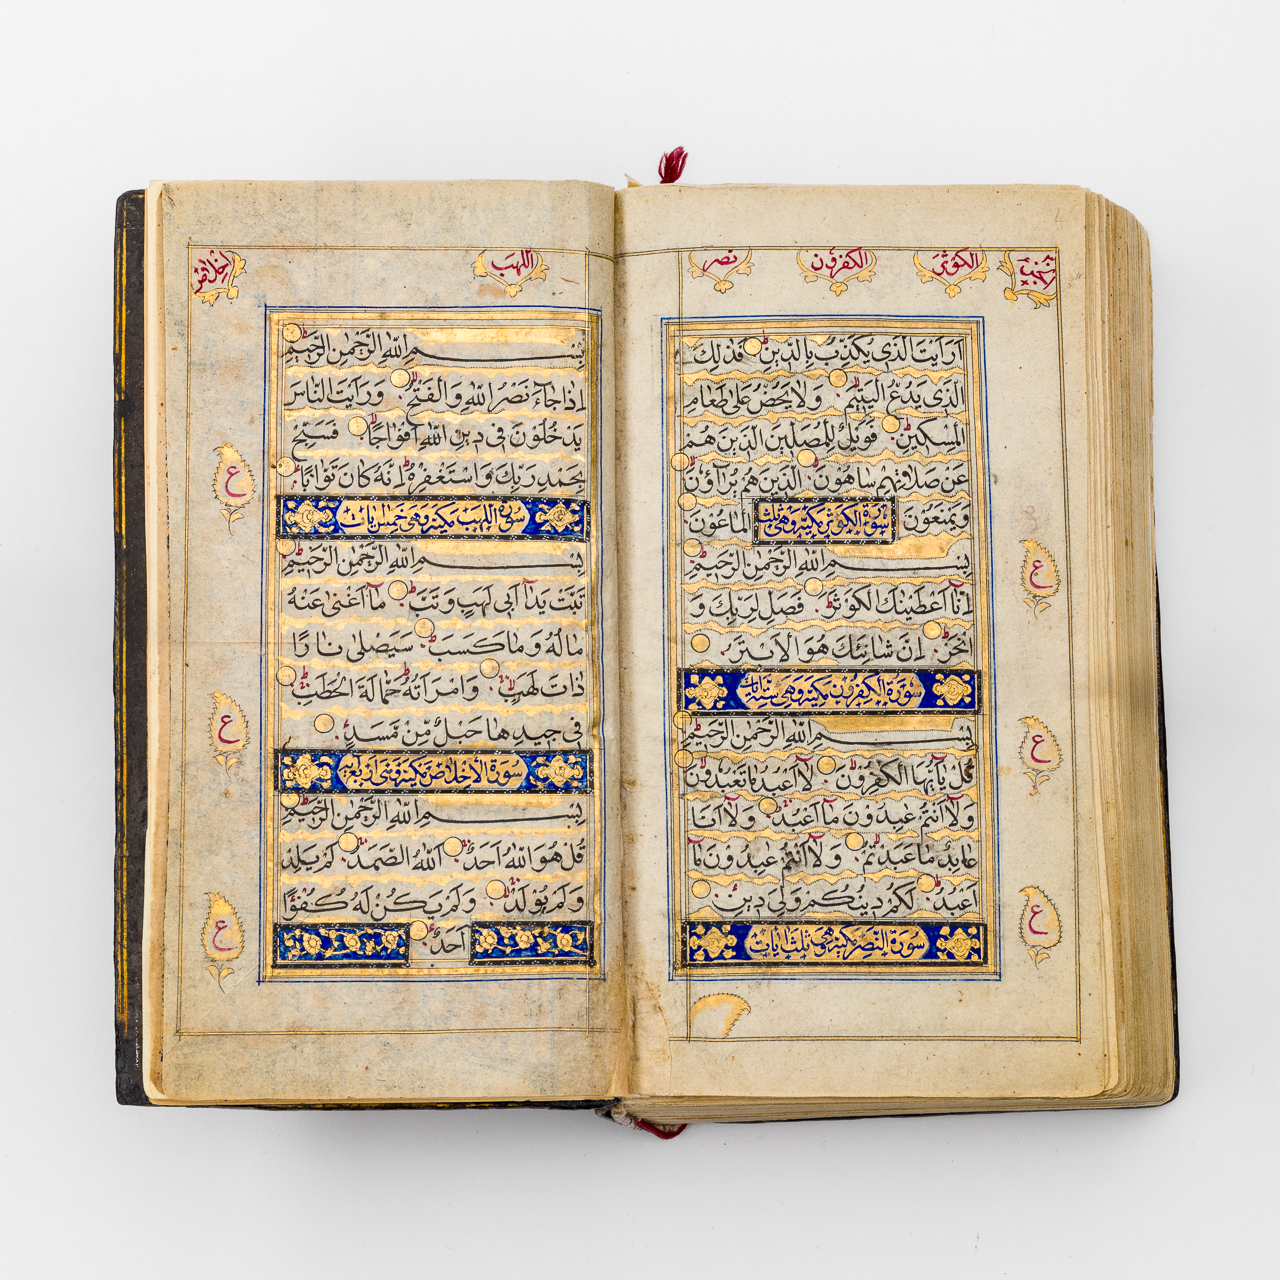 الكوثر
الكفرون
نصر
ارايت الذى يكذب بالدين فذلك
الذى يدع اليتيم ولا يحض على طعام
المسكين فويل للمصلين الذين هم
عن صلاتهم ساهون الذين هم يرآؤن
ويمنعون
سورة الكوثر مكية وهى ثلث
الماعون
بسم الله الرحمن الرحيم
انا اعطينك الكوثر فصل لربك و
انحر ان شانئك هو الابتر
سورة الكفرون مكية وهى ست ايات
بسم الله الرحمن الرحيم
قل يآ ايها الكفرون لآ اعبد ما تعبدون
ولآ انتم عبدون مآ اعبد ولآ انا
عابد ما عبدتم ولآ انتم عبدون مآ
اعبد لكم دينكم ولى دين
سورة النصر مكية وهى ثلث ايات
ع
ع
ع
اللهب
اخلاص
بسم الله الرحمن الرحيم
اذا جآء نصر الله والفتح ورايت الناس
يدخلون فى دين الله افواجا فسبح
بحمد ربك واستغفره انه كان توابا
سورة اللهب مكية وهى خمس ايات
بسم الله الرحمن الرحيم
تبت يدآ ابى لهب وتب مآ اغنى عنه
ماله وما كسب سيصلى نارا
ذات لهب وامراته حمالة الحطب
فى جيدها حبل من مسد
سورة الاخلاص مكية وهى اربع
بسم الله الرحمن الرحيم
قل هو الله احد الله الصمد لم يلد
ولم يولد ولم يكن له كفوا
احد
ع
ع
ع